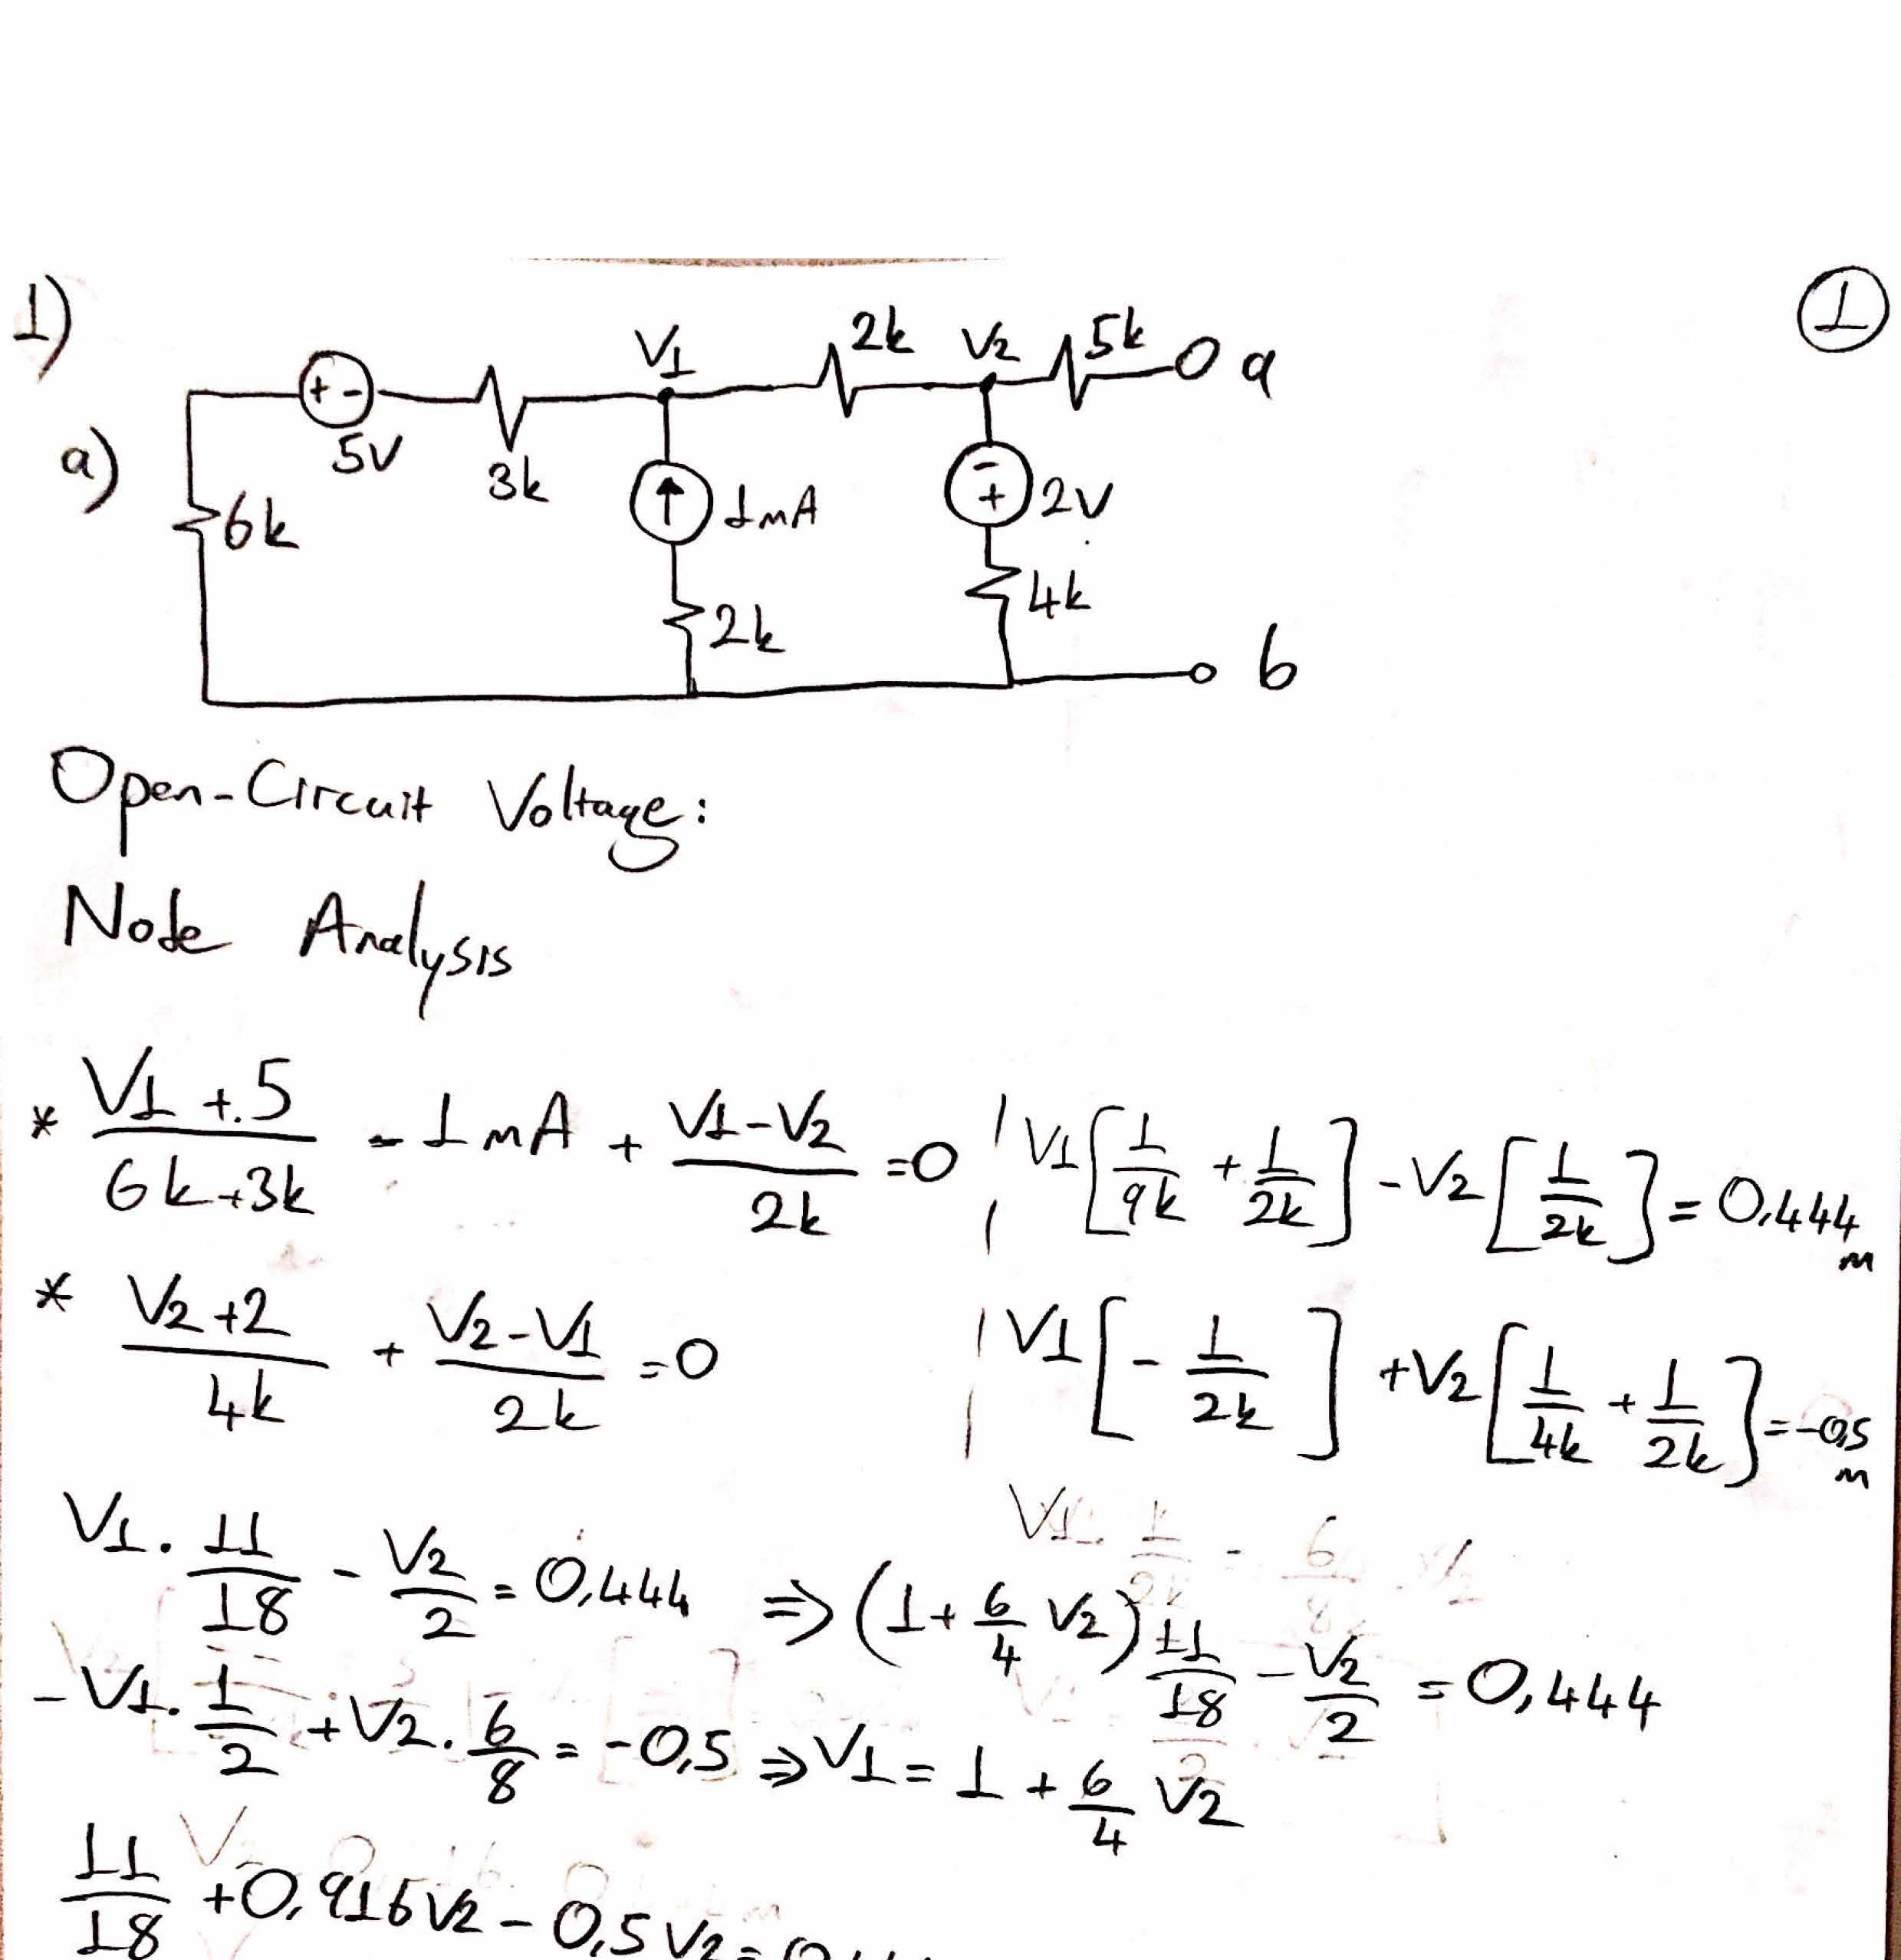 1)
①
a)
V1
2k
V2
5k
a
+ -
5V
3k
6k
1mA
2k
-
+
2V
4k
b
Open-Circuit Voltage:
Node Analysis
* (V1 + 5)/(6k+3k) - 1mA + (V1-V2)/2k = 0 | V1[1/9k + 1/2k] - V2[1/2k] = 0,444 m
* (V2+2)/4k + (V2-V1)/2k = 0 | V1[-1/2k] + V2[1/4k + 1/2k] = -0,5 m
V1. 11/18 - V2/2 = 0,444 ⇒ (1 + 6/4 V2) 11/18 - V2/2 = 0,444
-V1. 1/2 + V2. 6/8 = -0,5 ⇒ V1 = 1 + 6/4 V2
11/18 + 0,916V2 - 0,5V2 =